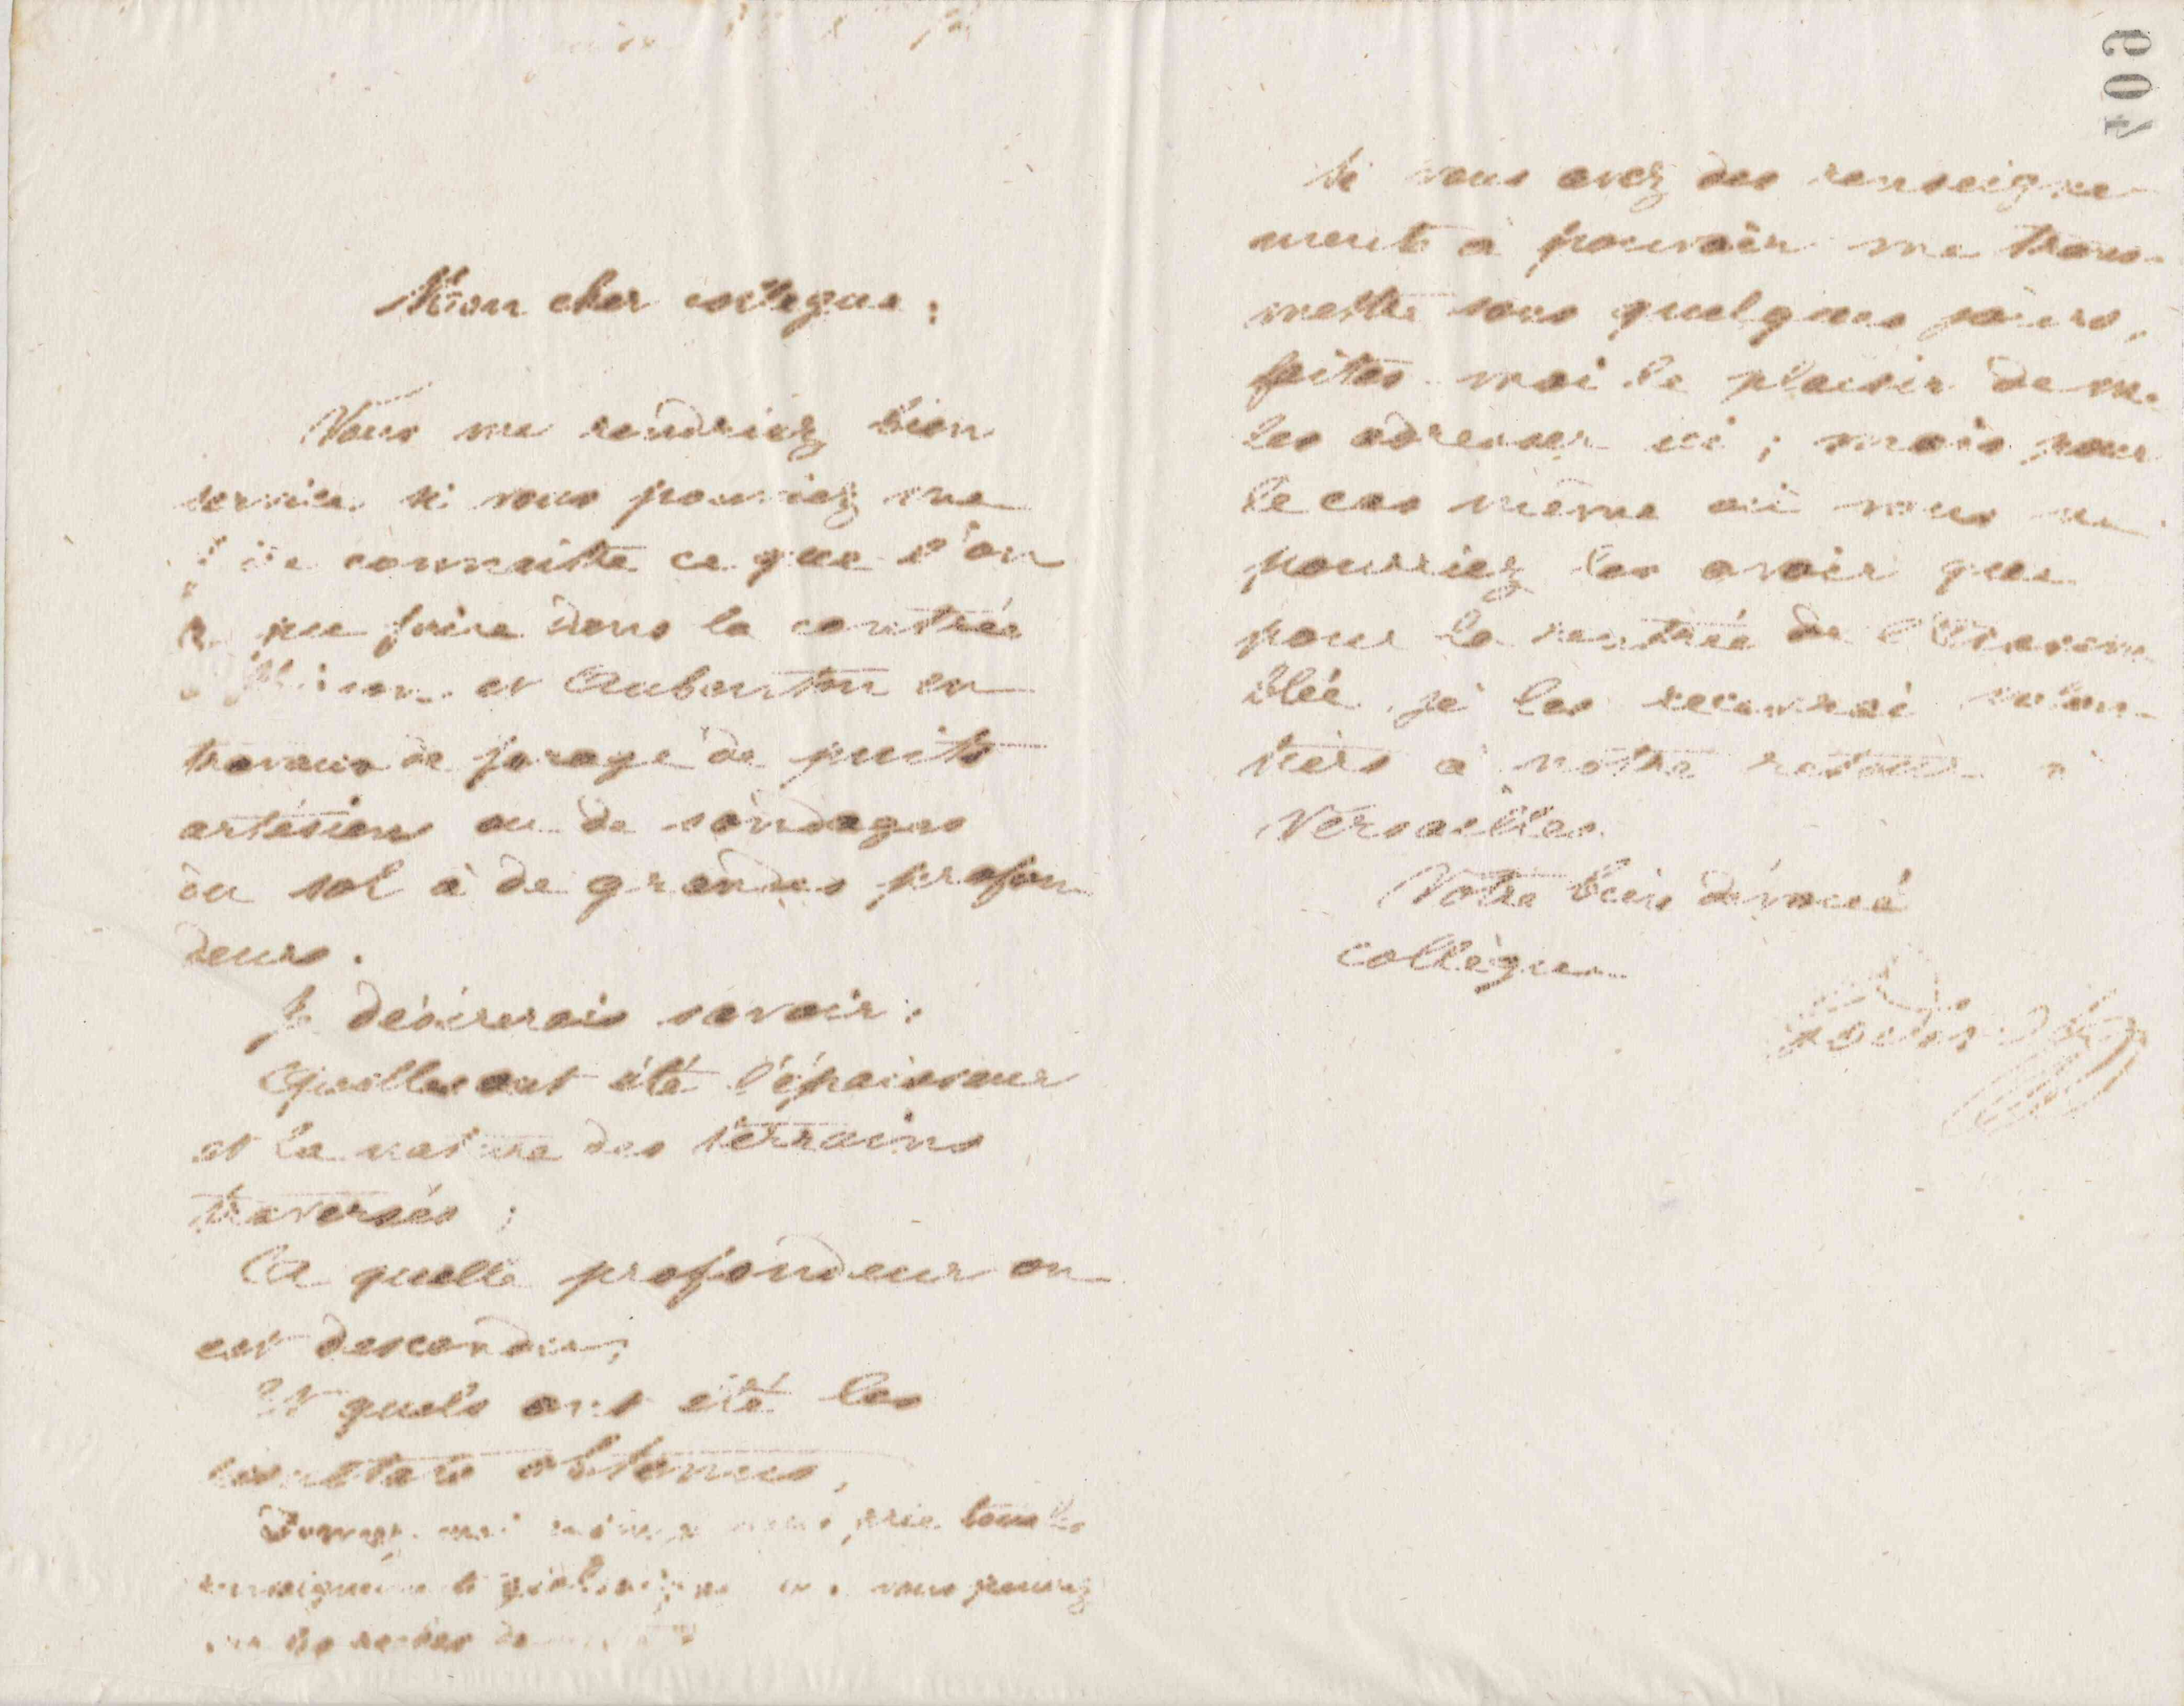 Mon cher collègue :
Vous me rendriez bien
service si vous pouviez me
connaître ce que l'on
a pu faire dans la contrée
et Aubenton en
travaux de forage de puits
artésiens ou de sondages
du sol à de grandes profon
deurs.
Je désirerais savoir :
Quelles ont été l'épaisseur
et la nature des terrains
traversés ;
A quelle profondeur on
est descendu ;
Et quels ont été les
résultats obtenus,
prie tous les
renseignements vous pouvez
de
409
Si vous avez des renseigne
ments à pouvoir me trans-
mettre sous quelques jours,
faites-moi le plaisir de me
les adresser ici ; mais pour
le cas même où vous ne
pourriez les avoir que
pour la rentrée de l'Assem
blée, je les recevrai volon-
tiers à notre retour à
Versailles.
Votre bien dévoué
collègue
Godin